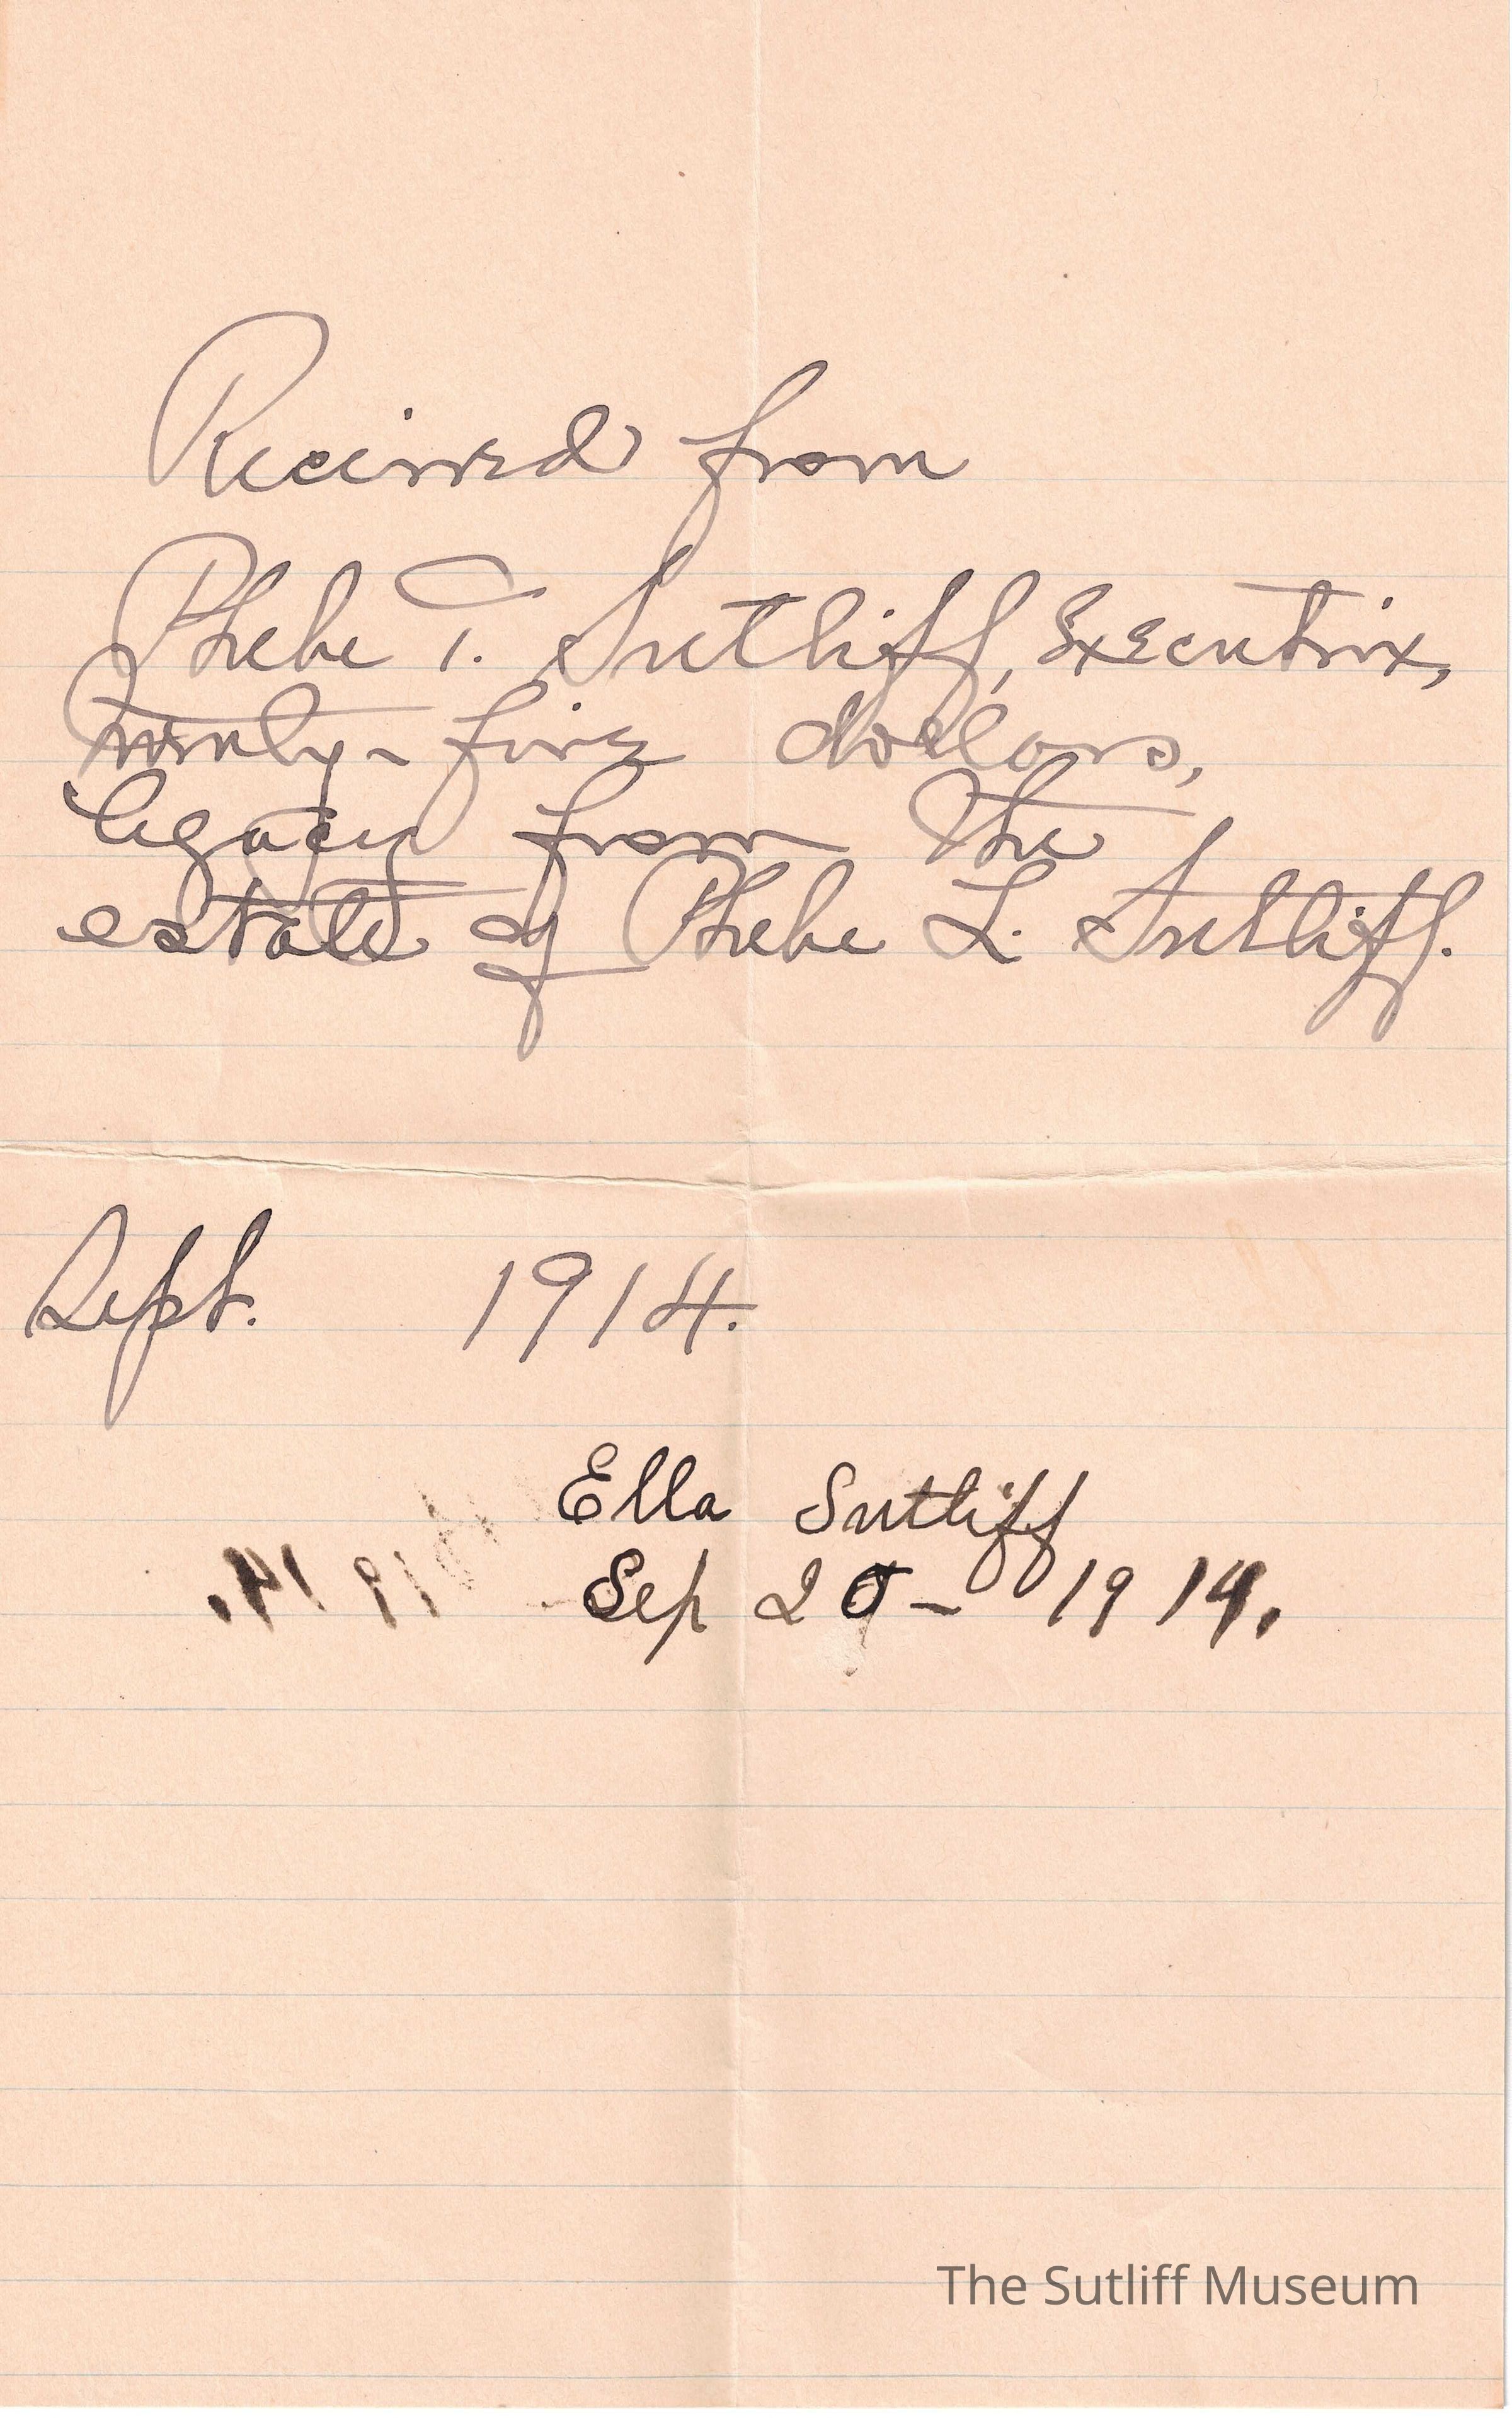 Received from
Phebe T. Sutliff, Executrix,
Twenty-five dollars,
legacy from the
estate of Phebe L. Sutliff.
Sept. 1914.
Ella Sutliff
Sep 1914.
The Sutliff Museum